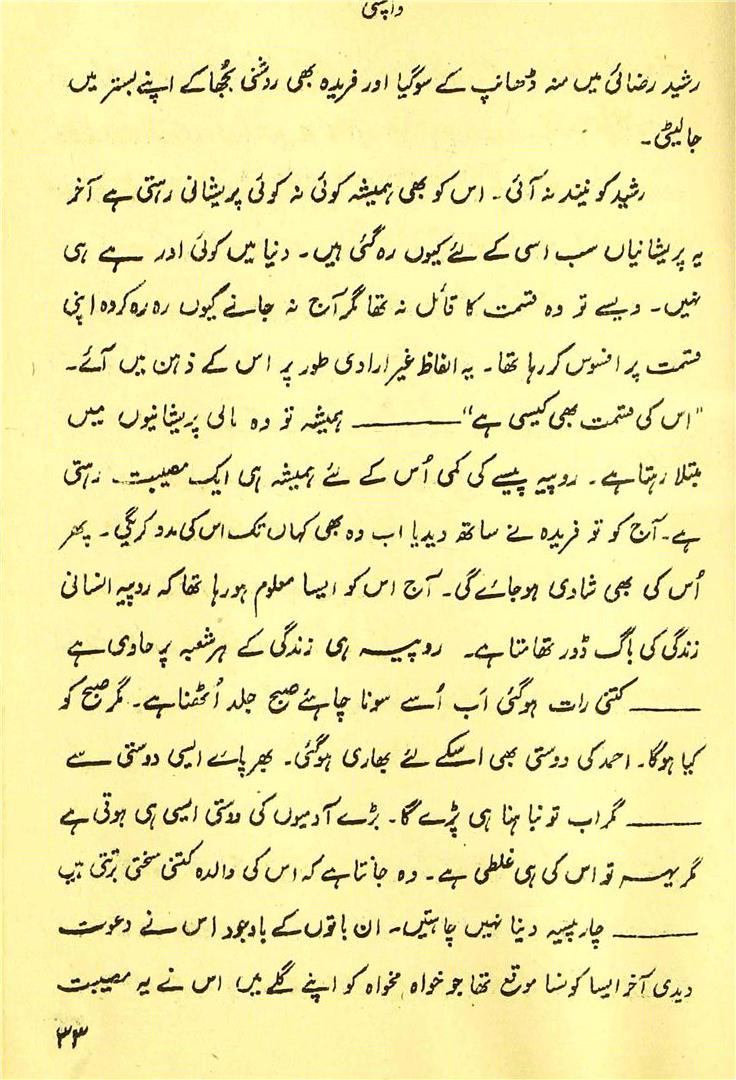 واپسی
رشید رضائی میں منہ ڈھانپ کے سوگیا اور فریدہ بھی روشنی بُجھا کے اپنے بستر میں
جا لیٹی۔
رشید کو نیند نہ آئی۔ اس کو بھی ہمیشہ کوئی نہ کوئی پریشانی رہتی ہے آخر
یہ پریشانیاں سب اسی کے لئے کیوں رہ گئی ہیں۔ دنیا میں کوئی اور ہے ہی
نہیں۔ ویسے تو وہ قسمت کا قائل نہ تھا مگر آج نہ جانے کیوں رہ رہ کر وہ اپنی
قسمت پر افسوس کر رہا تھا۔ یہ الفاظ غیر ارادی طور پر اس کے ذہن میں آئے۔
"اس کی قسمت بھی کیسی ہے" ——— ہمیشہ تو وہ مالی پریشانیوں میں
مبتلا رہتا ہے۔ روپیہ پیسے کی کمی اُس کے لئے ہمیشہ ہی ایک مصیبت رہتی
ہے۔ آج کو تو فریدہ نے ساتھ دیدیا اب وہ بھی کہاں تک اس کی مدد کریگی۔ پھر
اُس کی بھی شادی ہو جائے گی۔ آج اس کو ایسا معلوم ہو رہا تھا کہ روپیہ انسانی
زندگی کی باگ ڈور تھامتا ہے۔ روپیہ ہی زندگی کے ہر شعبہ پر حاوی ہے
——— کتنی رات ہوگئی اَب اُسے سونا چاہئے صبح جلد اُٹھنا ہے۔ مگر صبح کو
کیا ہوگا۔ احمد کی دوستی بھی اسکے لئے بھاری ہوگئی۔ بھر پائے ایسی دوستی سے
——— مگر اب تو نباہنا ہی پڑے گا۔ بڑے آدمیوں کی دوستی ایسی ہی ہوتی ہے
مگر یہہ تو اس کی ہی غلطی ہے۔ وہ جانتا ہے کہ اس کی والدہ کتنی سختی برتتی ہیں
——— چار پیسہ دینا نہیں چاہتیں۔ ان باتوں کے باوجود اس نے دعوت
دیدی آخر ایسا کونسا موقع تھا جو خواہ مخواہ کو اپنے گلے میں اس نے یہ مصیبت
۳۳